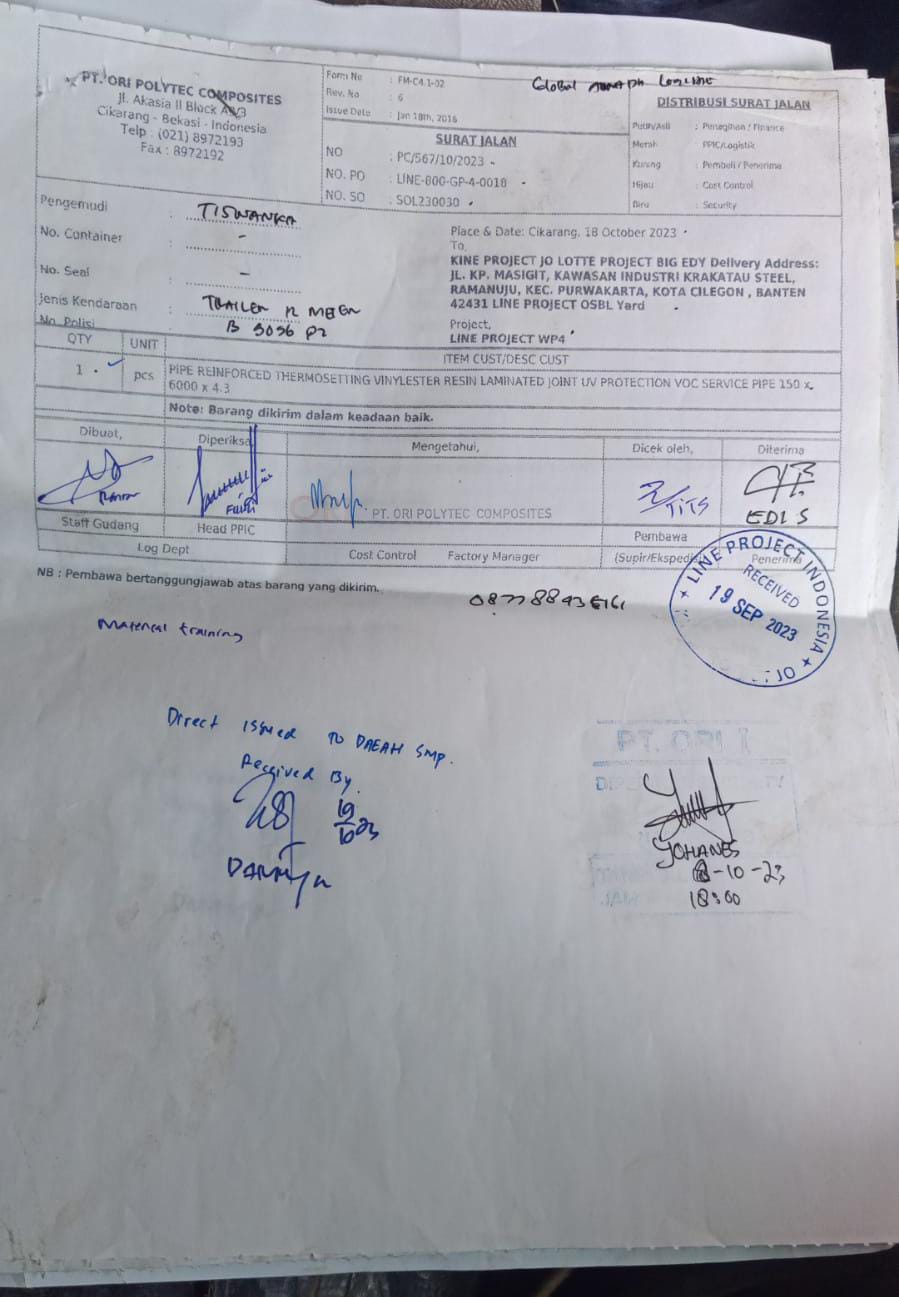 PT. ORI POLYTEC COMPOSITES
Jl. Akasia II Block
Cikarang - Bekasi - Indonesia
Telp : (021) 8972193
Fax : 8972192
Form No : FM-C4.1-02
Rev. No : 6
Issue Date : Jan 18th, 2016
SURAT JALAN
NO : PC/567/10/2023
NO. PO : LINE-800-GP-4-0018
NO. SO : SOL230030
Global
DISTRIBUSI SURAT JALAN
Putih/Asli : Penagihan / Finance
Merah : PPIC/Logistik
Kuning : Pembeli / Penerima
Hijau : Cost Control
Biru : Security
Pengemudi : TISWANKA
No. Container : -
No. Seal : -
Jenis Kendaraan : TRAILER
No. Polisi B
Place & Date: Cikarang, 18 October 2023
To,
KINE PROJECT JO LOTTE PROJECT BIG EDY Delivery Address:
JL. KP. MASIGIT, KAWASAN INDUSTRI KRAKATAU STEEL,
RAMANUJU, KEC. PURWAKARTA, KOTA CILEGON , BANTEN
42431 LINE PROJECT OSBL Yard
Project,
LINE PROJECT WP4
QTY UNIT ITEM CUST/DESC CUST
1 pcs PIPE REINFORCED THERMOSETTING VINYLESTER RESIN LAMINATED JOINT UV PROTECTION VOC SERVICE PIPE 150 x
6000 x 4.3
Note: Barang dikirim dalam keadaan baik.
Dibuat, Diperiksa Mengetahui, Dicek oleh, Diterima
PT. ORI POLYTEC COMPOSITES
TITS
EDI S
Staff Gudang Head PPIC Pembawa
Log Dept Cost Control Factory Manager (Supir/Ekspedisi) Penerima
NB : Pembawa bertanggungjawab atas barang yang dikirim.
LINE PROJECT INDONESIA
RECEIVED
19 SEP 2023
JO
Material training
Direct issued to DAEAH SMP.
Received By
19/10 23
PT. ORI
YOHANES
18-10-23
JAM 18:00